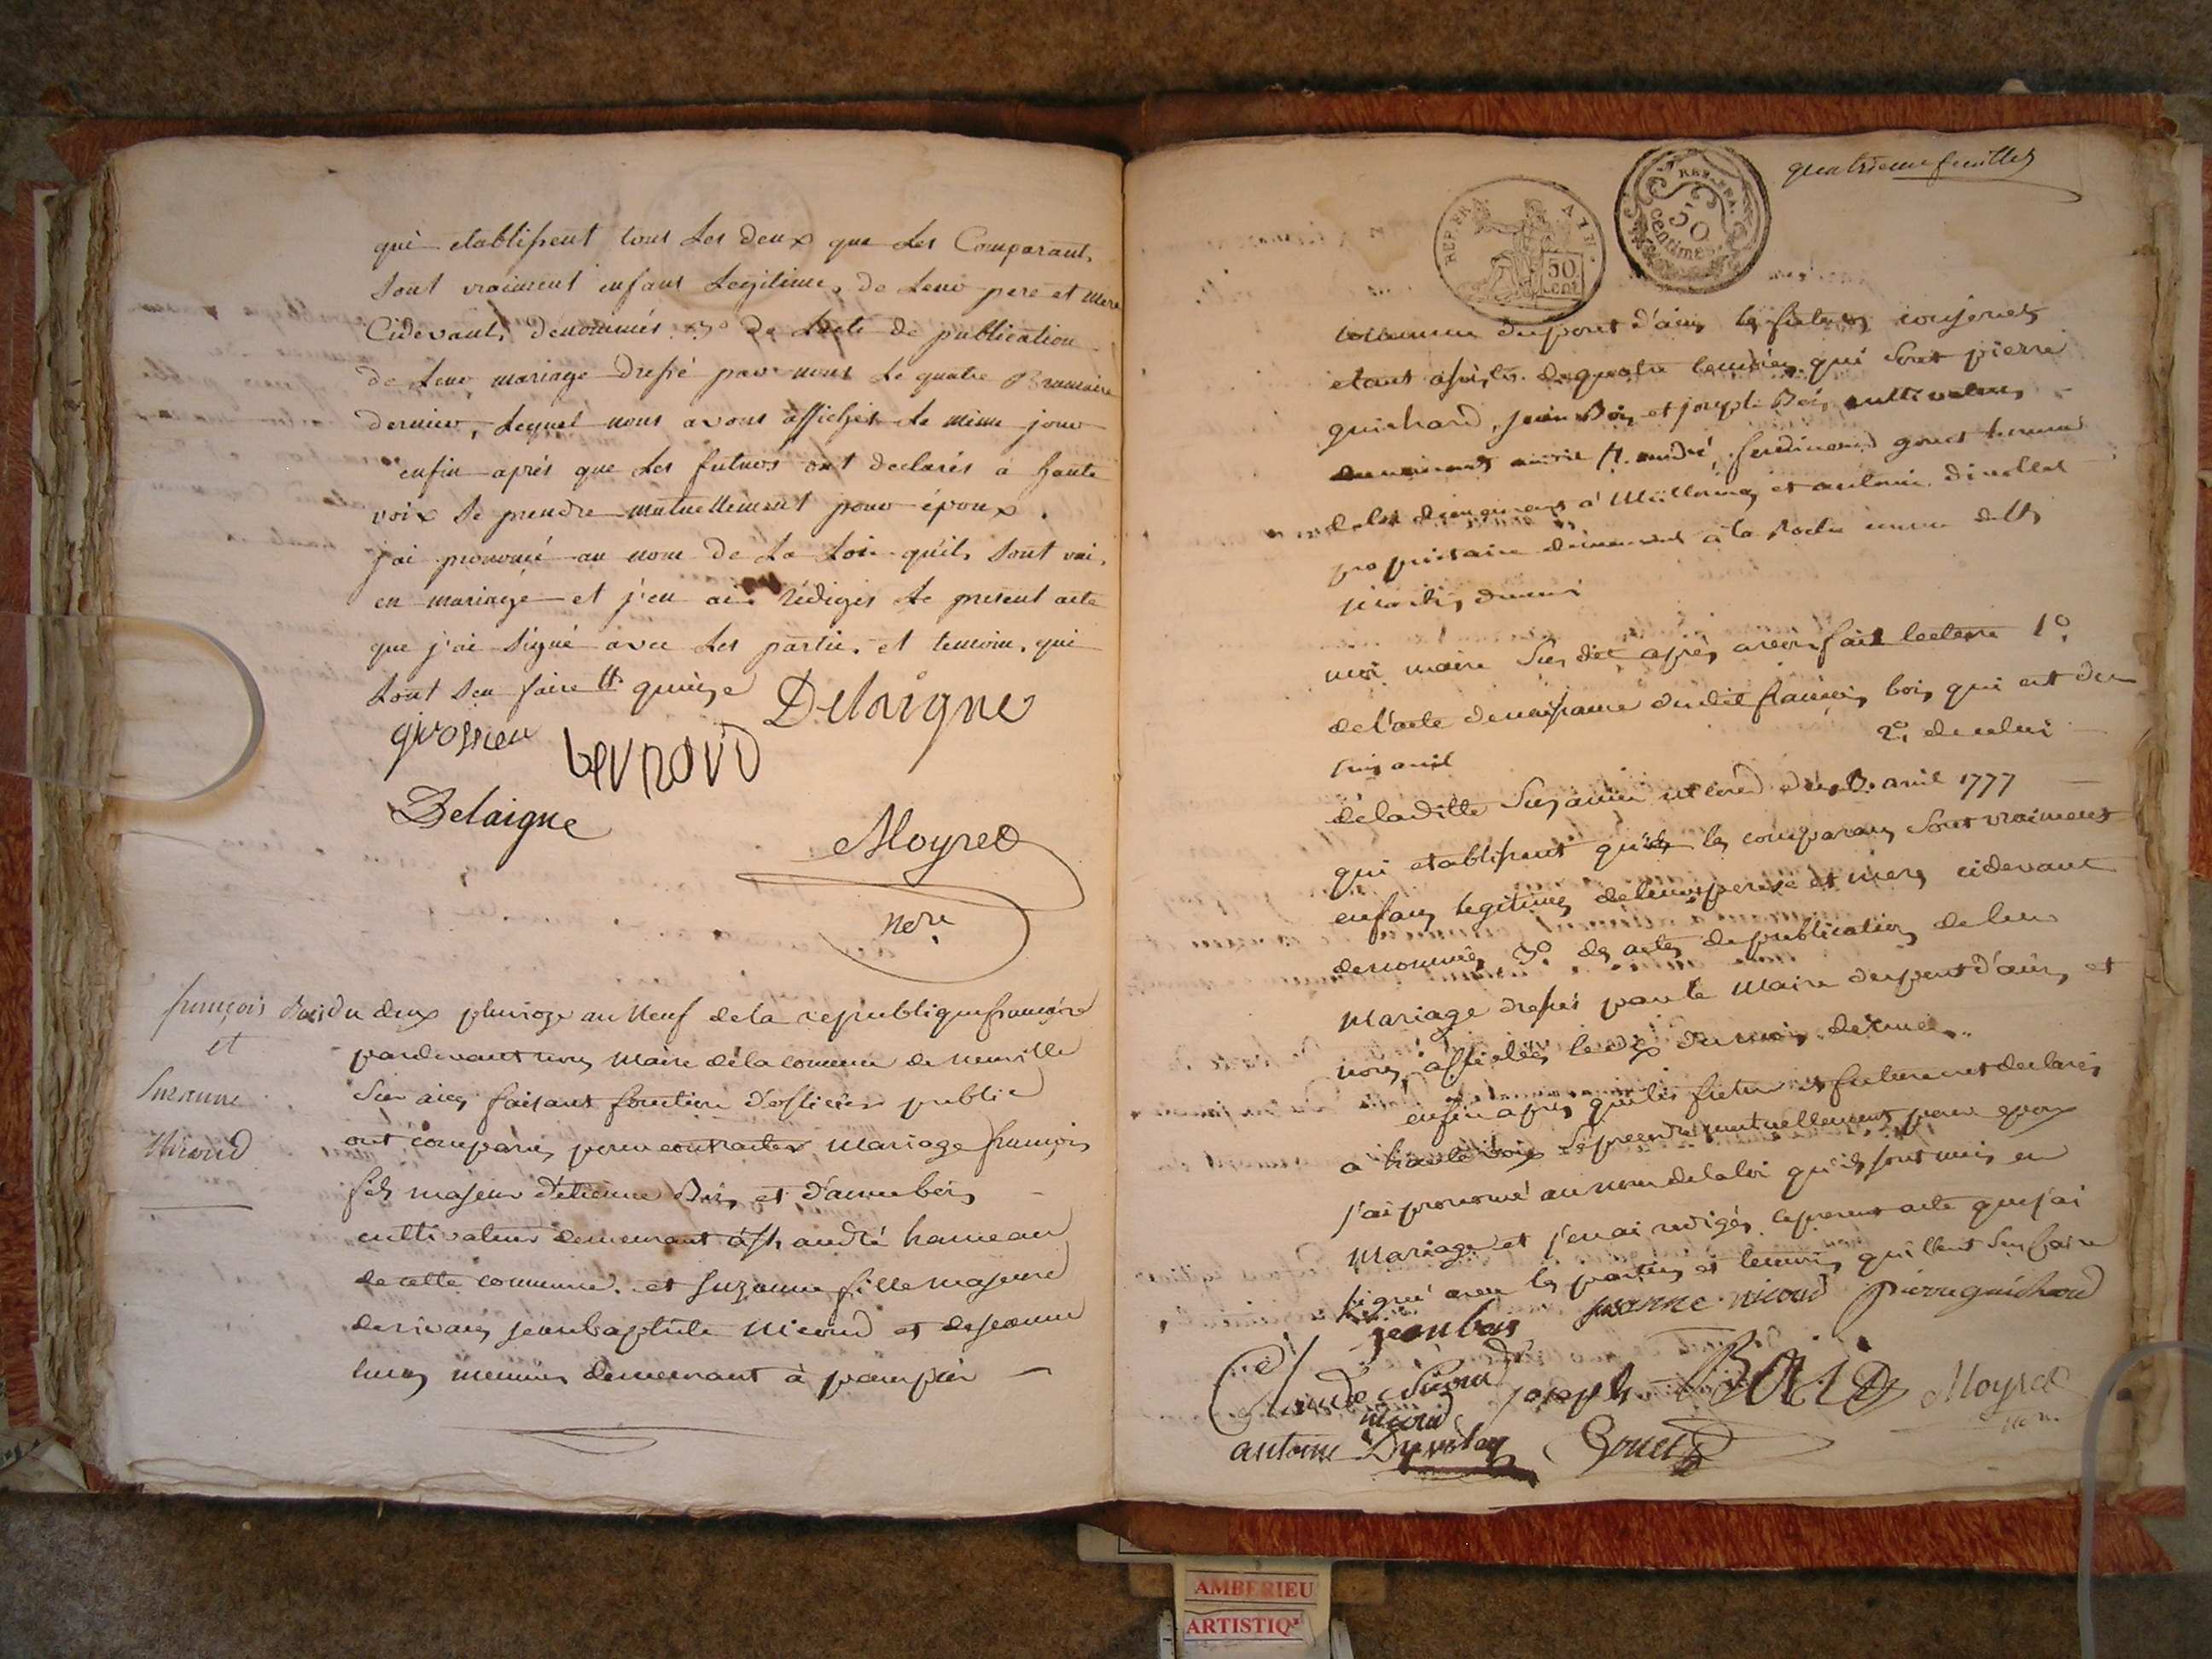 qui etablissent tous Les deux que Les Comparants
Sont vraiment enfans Legitimes de Leur pere et mere
Cidevants dénommés 3º De Lacte de publication
de Leur mariage dressé par nous Le quatre Brumaire
dernier, Lequel nous avons affichés Le même jour
enfin après que Les futurs ont declarés a haute
voix Se prendre mutuellement pour époux.
j'ai prononcé au nom De La Loi qu'ils Sont unis
en mariage et j'en ai Rédigés Le present acte
que j'ai Signé avec Les parties et temoins, qui
Sont Seu faire quinze
Delaigne
grossieu
bernord
Delaigne
Moyret
françois Bois
et
Suzanne
Nicoud
du deux pluvioze an Neuf de la republique françoise
pardevant nous Maire de la commune de neuville
Sur ains faisant fonction d'officier public
ont comparus pour contracter Mariage françois
fils majeur d'etienne Bois et d'anne bois
cultivateur demeurant à St. andré hameau
de cette commune. et Suzanne fille majeure
des vivans jean baptiste Nicoud et de jeanne
demeurant à pampier
quatrieme feuillet
REP. FRA. 50 cent
REP. FRA. 50 centimes
commune du pont d'ains les futurs conjoints
etant assistés de quatre temoins qui Sont pierre
guichard, jean Bois et joseph Bois cultivateurs
St. andré, ferdinand gouet
et antoine
propriétaire demeurant à la Roche
moi maire Susdit après avoir fait lecture 1º.
de l'acte de naissance dudit françois bois qui est du
2º. de celui
de laditte Suzanne nicoud du avril 1777
qui etablissent que les comparans Sont vraiment
enfans legitimes de leurs peres et meres cidevant
denommés 3º. des actes de publication de leur
Mariage dressés par le Maire du pont d'ains et
nous affichés le dix du mois
enfin après que les futur et future ont declarés
à haute voix Se prendre mutuellement pour epoux
j'ai prononcé au nom de la loi qu'ils sont unis en
Mariage et j'en ai redigés le present acte que j'ai
Signé avec les parties et temoins qui l'ont Seu faire
jean bois
susanne nicoud
pierre guichard
Claude Nicoud
nicoud
joseph Bois
Moyret
antoine
Gouet
AMBERIEU
ARTISTIQ